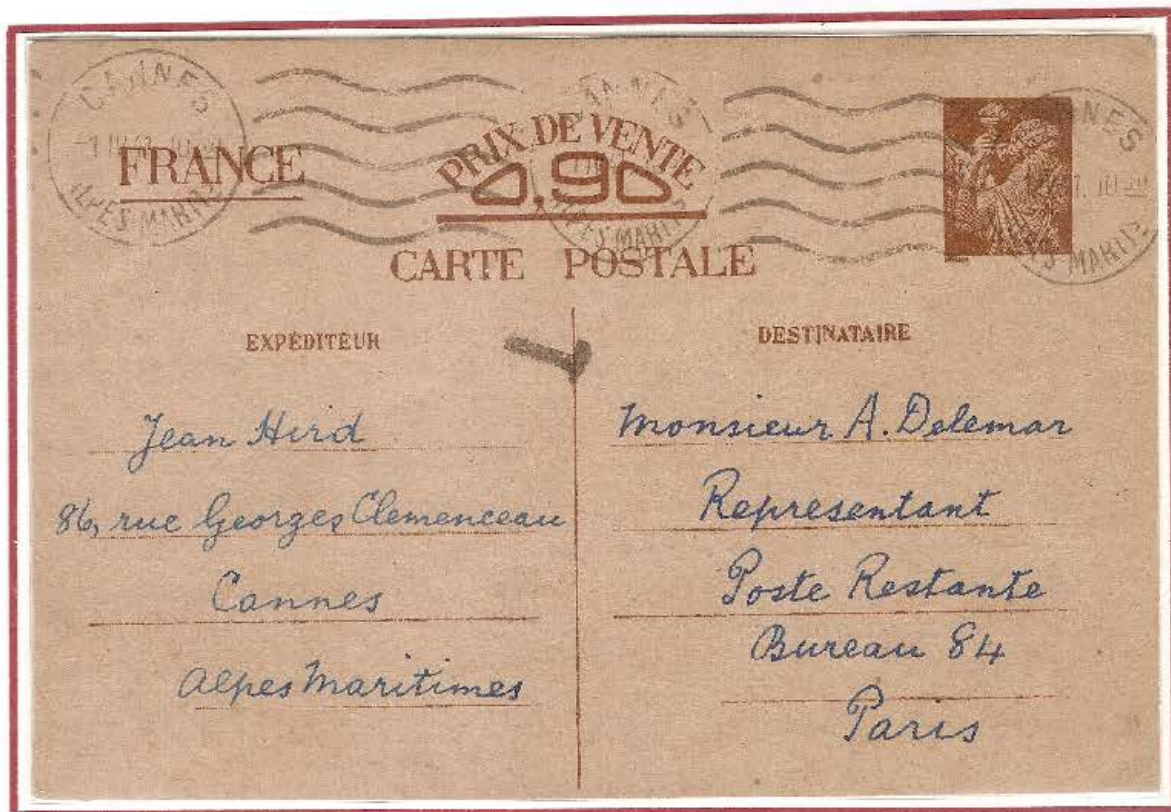 CANNES
ALPES MARITIMES
FRANCE
PRIX DE VENTE
0,90
CARTE POSTALE
EXPÉDITEUR
Jean Hird
86, rue Georges Clemenceau
Cannes
Alpes Maritimes
DESTINATAIRE
Monsieur A. Delemar
Representant
Poste Restante
Bureau 84
Paris